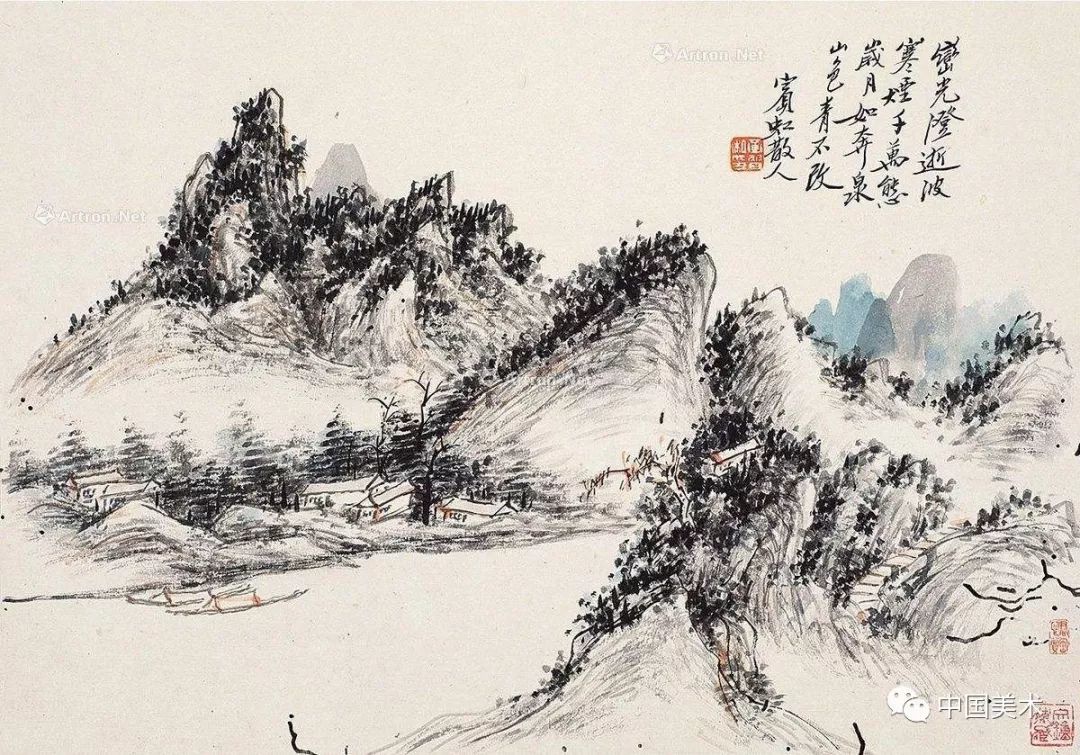 巒光澄逝波
寒煙千萬態
歲月如奔泉
山色青不改
賓虹散人
Artron.Net
Artron.Net
Artron.Net
中国美术